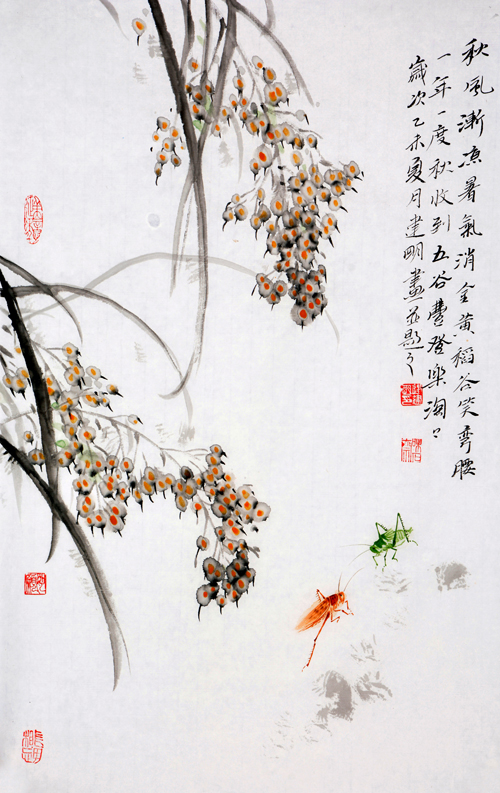 秋風漸凉暑氣消金黄稻谷笑彎腰
一年一度秋收到五谷豐登樂淘々
歲次乙未夏月建明畫並題